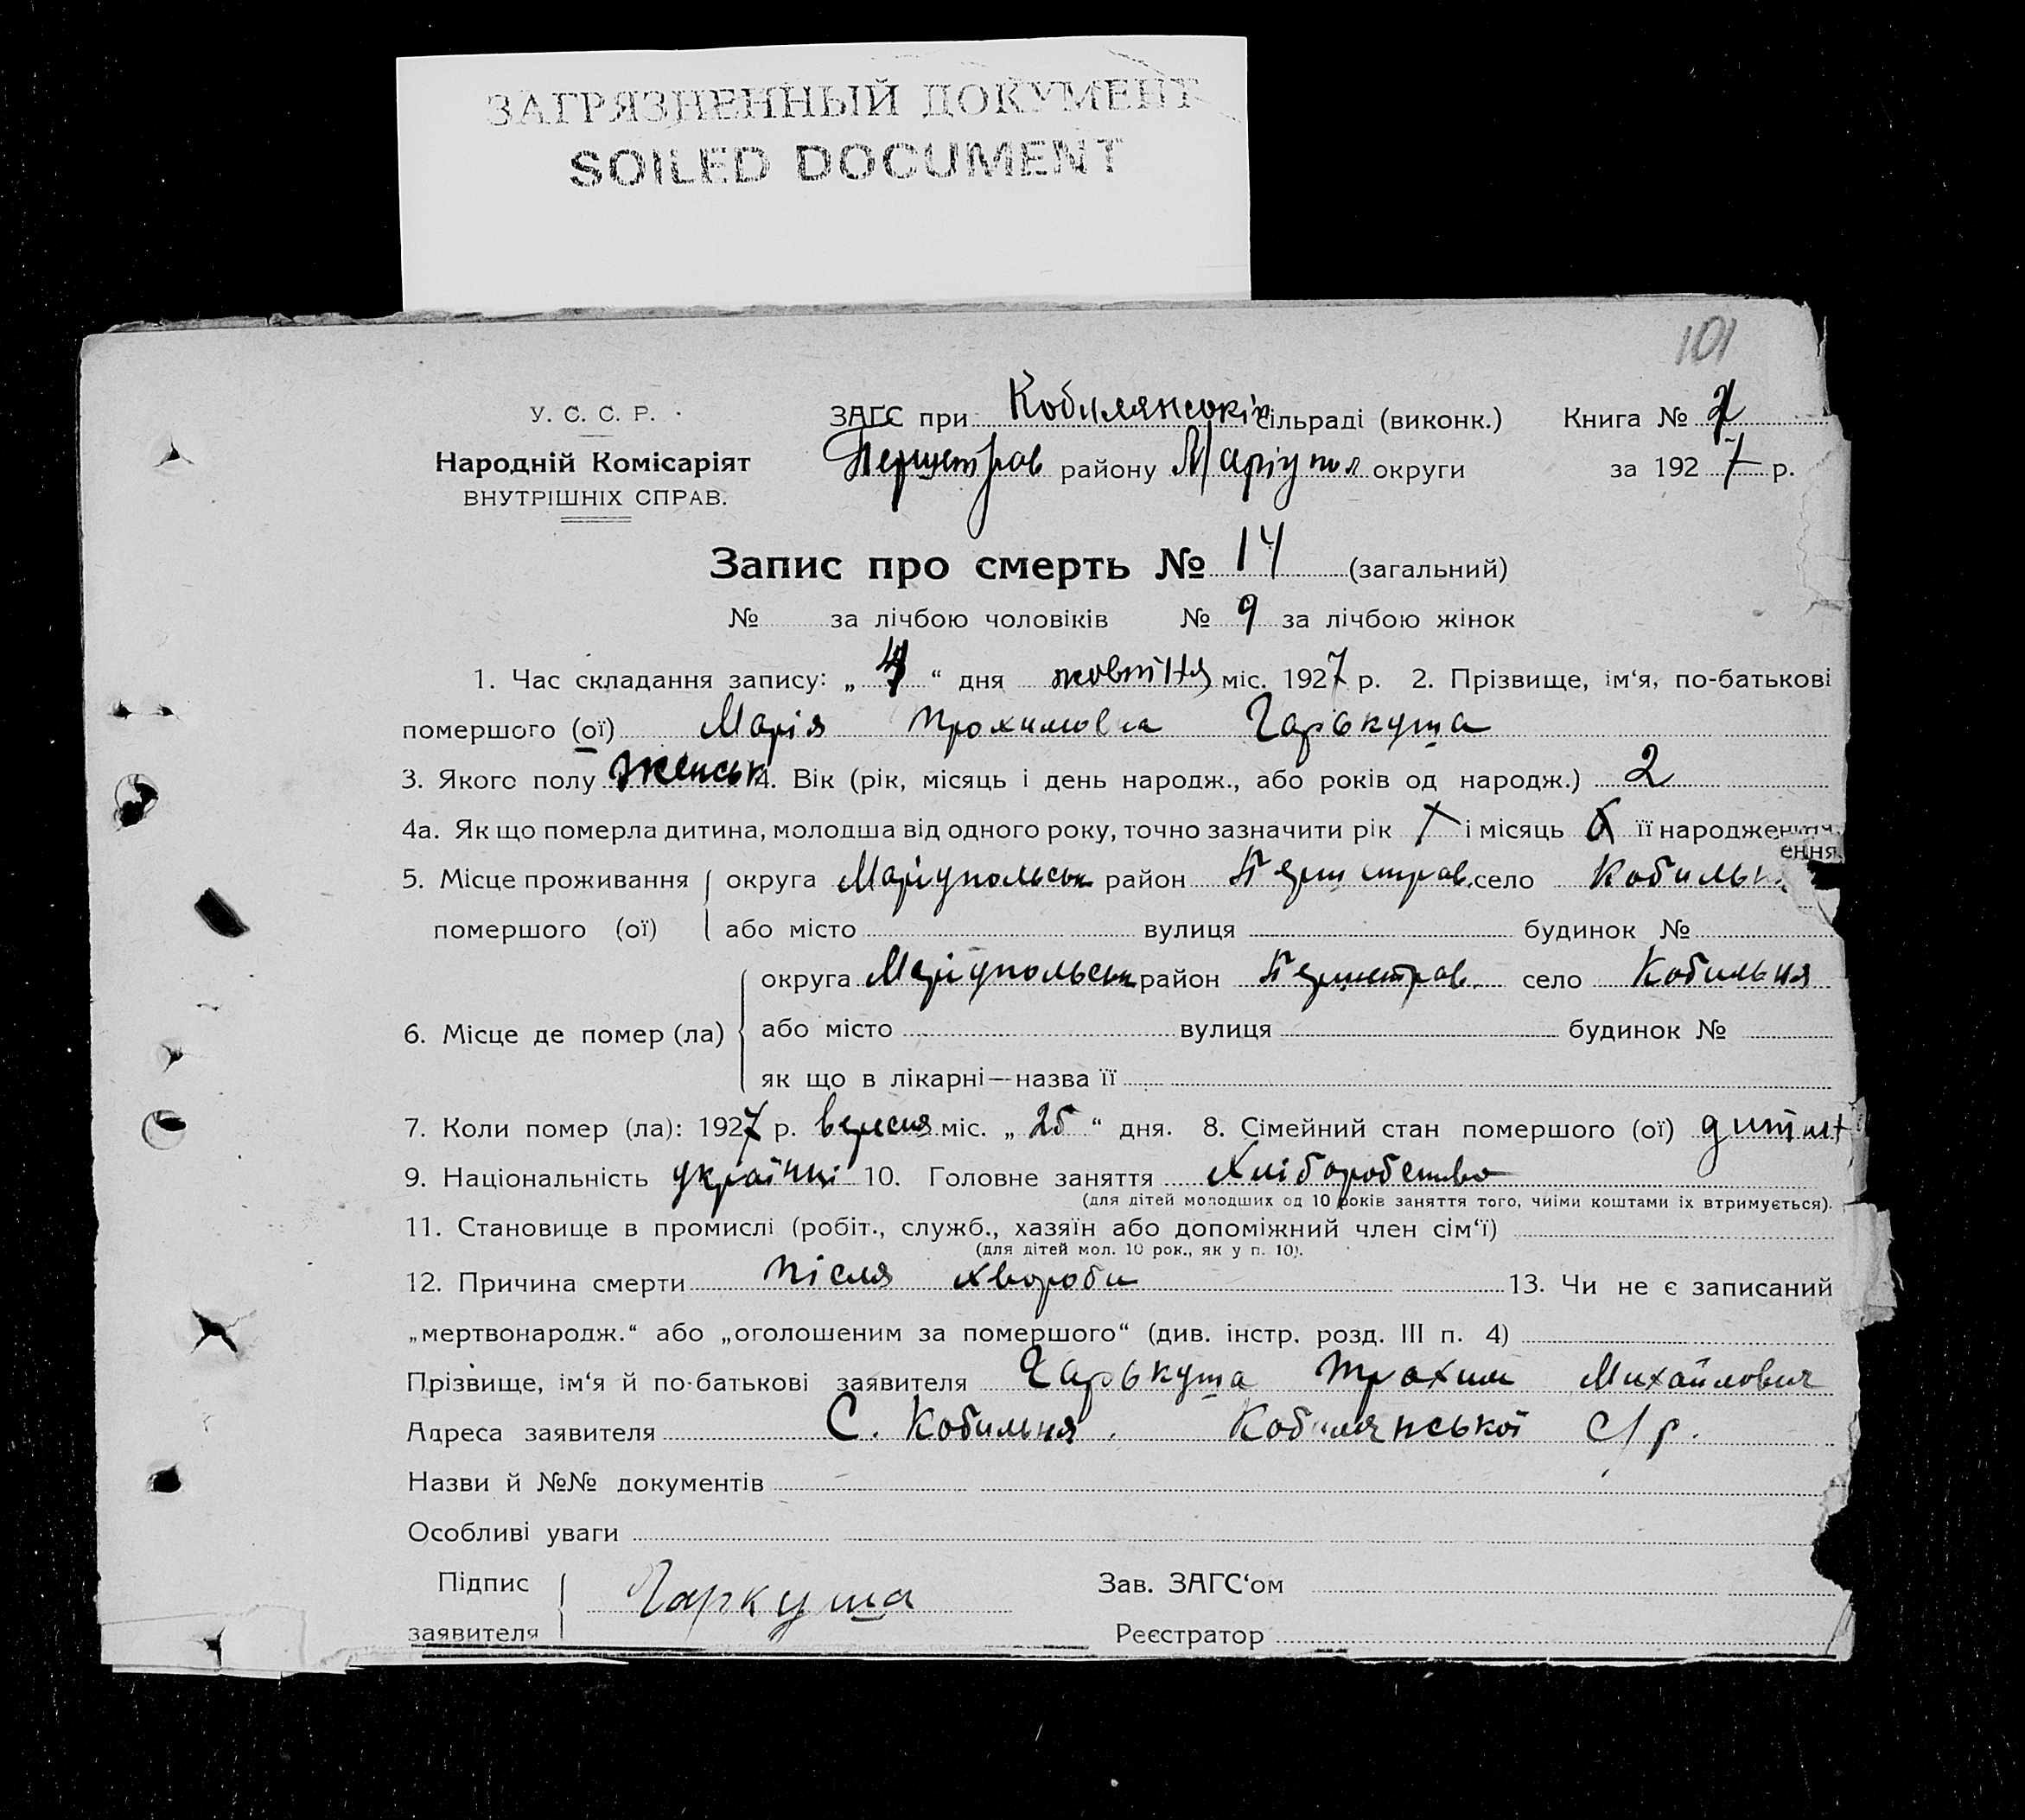 ЗАГРЯЗНЕННЫЙ ДОКУМЕНТ
SOILED DOCUMENT
101
У. С. С. Р.
Народній Комісаріят
ВНУТРІШНІХ СПРАВ.
ЗАГС при Кобилянській сільраді (виконк.) Книга № 2
Першотрав району Маріупол округи за 1927 р.
Запис про смерть № 14 (загальний)
№ за лічбою чоловіків № 9 за лічбою жінок
1. Час складання запису: „ 4 “ дня жовтня міс. 1927 р. 2. Прізвище, ім‘я, по-батькові
помершого (ої) Марія Трохимовна Гарькуша
3. Якого полу женськ 4. Вік (рік, місяць і день народж., або років од народж.) 2
4а. Як що померла дитина, молодша від одного року, точно зазначити рік і місяць її народження
ення
5. Місце проживання округа Маріупольськ район Першотрав. село Кобильн
помершого (ої) або місто вулиця будинок №
6. Місце де помер (ла) округа Маріупольськ район Першотрав. село Кобильня
або місто вулиця будинок №
як що в лікарні—назва її
7. Коли помер (ла): 1927 р. вересня міс. „ 25 “ дня. 8. Сімейний стан помершого (ої)
9. Національність українці 10. Головне заняття Хліборобство
(для дітей молодших од 10 років заняття того, чиїми коштами їх втримується).
11. Становище в промислі (робіт., служб., хазяїн або допоміжний член сім‘ї)
(для дітей мол. 10 рок., як у п. 10).
12. Причина смерти після хвороби 13. Чи не є записаний
„мертвонародж.“ або „оголошеним за помершого“ (див. інстр. розд. III п. 4)
Прізвище, ім‘я й по-батькові заявителя Гарькуша Трохим Михайлович
Адреса заявителя С. Кобильня. Кобилянської с/р.
Назви й №№ документів
Особливі уваги
Підпис
заявителя Гаркуша
Зав. ЗАГС‘ом
Реєстратор